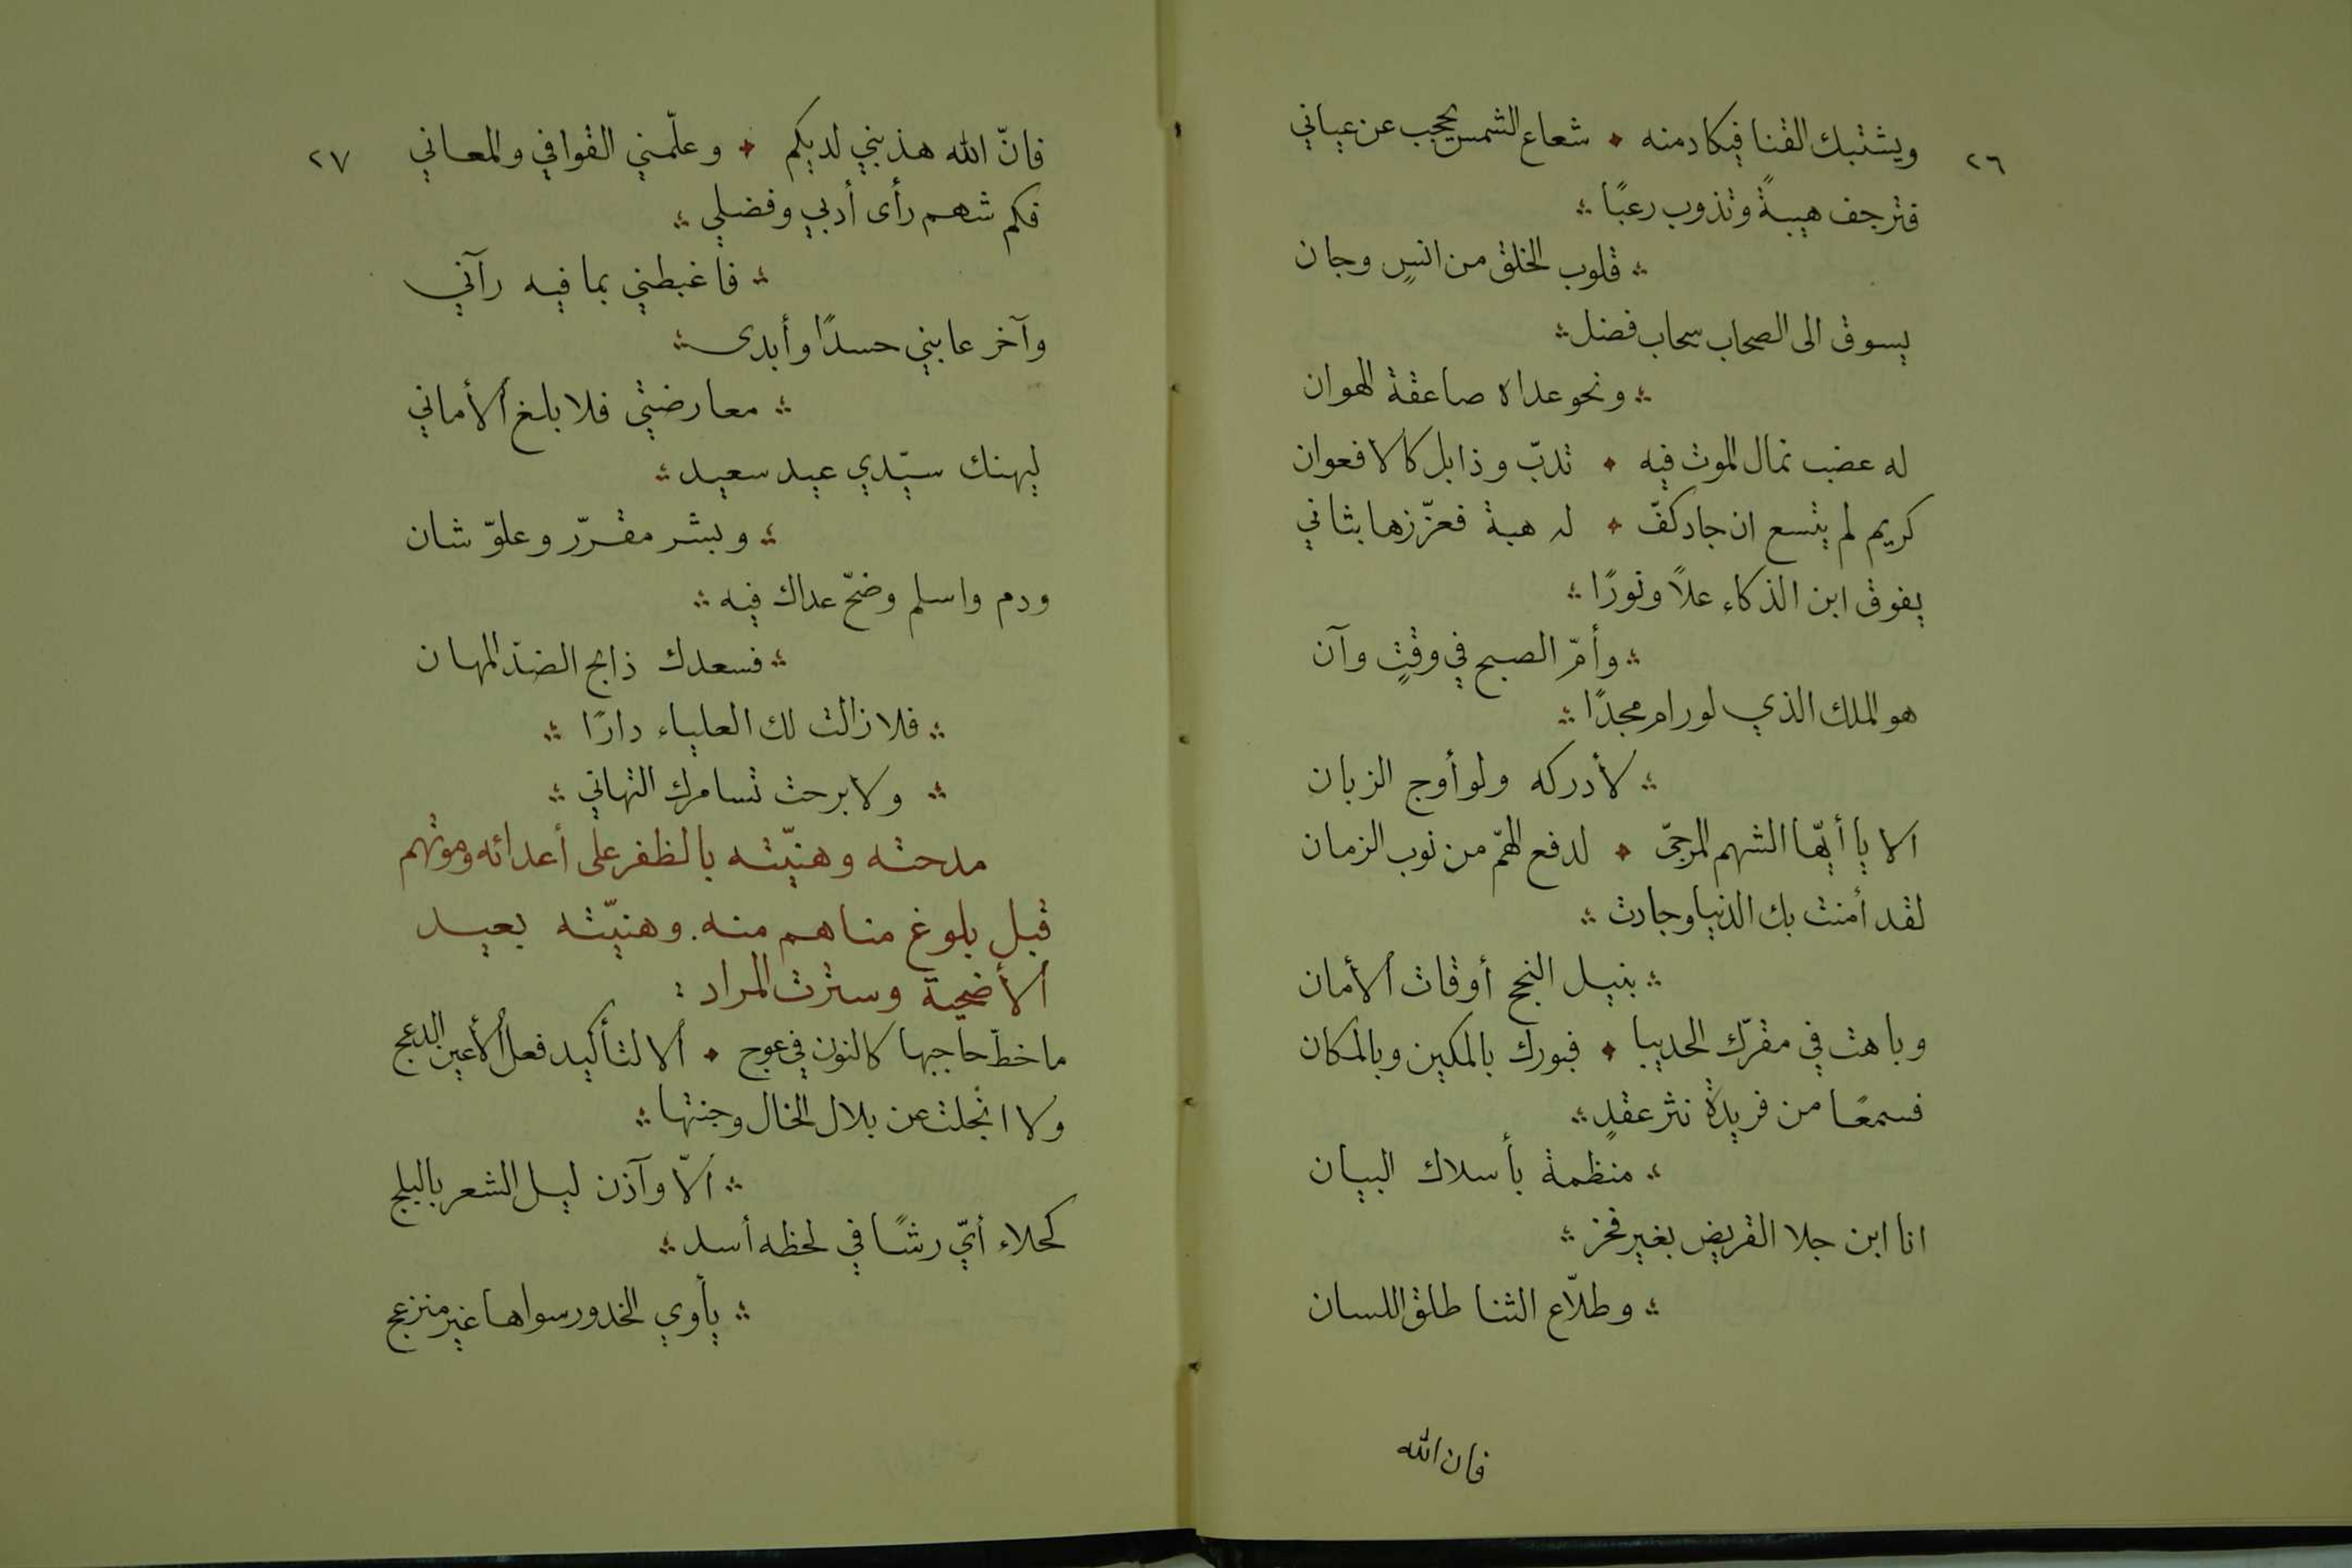 ٢٦
ويشتبك القنا فيكاد منه ٭ شعاع الشمس يحجب عن عياني
فترجف هيبةً وتذوب رعبًا ؞
؞ قلوب الخلق من انسٍ وجان
يسوق الى الصحاب سحاب فضل ؞
؞ ونحو عداه صاعقة الهوان
له عضب نمال الموت فيه ٭ تدبّ وذابل كالافعوان
كريم لم يتسع ان جاد كفّ ٭ له هبة فعزّزها بثاني
يفوق ابن الذكاء علاً ونورًا ؞
؞ وأمّ الصبح في وقتٍ وآن
هو الملك الذي لو رام مجدًا ؞
؞ لأدركه ولو أوج الزبان
الا يا أيّها الشهم المرجّى ٭ لدفع الهمّ من نوب الزمان
لقد أمنت بك الدنيا وجادت ؞
؞ بنيل النجح أوقات الأمان
وباهت في مقرّك الحديبا ٭ فبورك بالمكين وبالمكان
فسمعًا من فريدة نثر عقدٍ ؞
؞ منظمة بأسلاك البيان
انا ابن جلا القريض بغير فخز ؞
؞ وطلّاع الثنا طلق اللسان
فان الله
٢٧
فانّ الله هذبني لديكم ٭ وعلّمني القوافي والمعاني
فكم شهم رأى أدبي وفضلي ؞
؞ فاغبطني بما فيه رآني
وآخر عابني حسدًا وأبدى ؞
؞ معارضتي فلا بلغ الأماني
ليهنك سيّدي عيد سعيد ؞
؞ وبشر مقرّر وعلوّ شان
ودم واسلم وضحّ عداك فيه ؞
؞ فسعدك ذابح الضدّ المهان
؞ فلا زالت لك العلياء دارًا ؞
؞ ولا برحت تسامرك التهاني ؞
مدحته وهنيّته بالظفر على أعدائه وموتهم
قبل بلوغ مناهم منه. وهنيّته بعيد
الأضحية وسترت المراد :
ما خطّ حاجبها كالنون في عوج ٭ الا لتأكيد فعل الأعين الدعج
ولا انجلت عن بلال الخال وجنتها ؞
؞ الّا وآذن ليل الشعر بالبلج
كحلاء أيّ رشًا في لحظه أسد ؞
؞ يأوي الخدور سواها غير منزعج